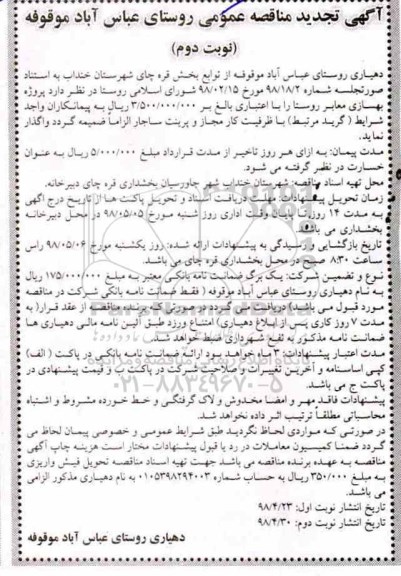 آگهی تجدید مناقصه عمومی روستای عباس آباد موقوفه
(نوبت دوم)
دهیاری روستای عباس آباد موقوفه از توابع بخش قره چای شهرستان خنداب به استناد
صورتجلسه شماره ۹۸/۱۸/۲ مورخ ۹۸/۰۲/۱۵ شورای اسلامی روستا در نظر دارد پروژه
بهسازی معابر روستا را با اعتباری بالغ بر ۳/۵۰۰/۰۰۰/۰۰۰ ریال به پیمانکاران واجد
شرایط ( گرید مرتبط) با ظرفیت کار مجاز و پرینت ساجار الزاماً ضمیمه گردد واگذار
نماید.
مدت پیمان: به ازای هر روز تاخیر از مدت قرارداد مبلغ ۵/۰۰۰/۰۰۰ ریال به عنوان
خسارت در نظر گرفته می شود.
محل تهیه اسناد مناقصه: شهرستان خنداب شهر جاورسیان بخشداری قره چای دبیرخانه.
زمان تحویل پیشنهادات مهلت دریافت اسناد و تحویل پاکت ها از تاریخ درج آگهی
به مدت ۱۴ روز تا پایان وقت اداری روز شنبه مورخ ۹۸/۰۵/۰۵ در محل دبیرخانه
بخشداری می باشد.
تاریخ بازگشایی و رسیدگی به پیشنهادات ارائه شده: روز یکشنبه مورخ ۹۸/۰۵/۰۶ راس
ساعت ۸:۳۰ صبح در محل بخشداری قره چای می باشد.
نوع و تضمین شرکت: یک برگ ضمانت نامه بانکی معتبر به مبلغ ۱۷۵/۰۰۰/۰۰۰ ریال
به نام دهیاری روستای عباس آباد موقوفه ( فقط ضمانت نامه بانکی شرکت در مناقصه
مورد قبول می باشد) دریافت می گردد در صورتی که برنده مناقصه از عقد قرار( به
مدت ۷ روز کاری پس از ابلاغ دهیاری) امتناع ورزد طبق آئین نامه مالی دهیاری ها
ضمانت نامه مذکور به نفع شهرداری ضبط خواهد شد.
مدت اعتبار پیشنهادات: ۳ ماه خواهد بود ارائه ضمانت نامه بانکی در پاکت ( الف)
کپی اساسنامه و آخرین تغییرات و صلاحیت شرکت در پاکت ب و قیمت پیشنهادی در
پاکت ج می باشد.
پیشنهادات فاقد مهر و امضا مخدوش و لاک گرفتگی و خط خورده مشروط و اشتباه
محاسباتی مطلقاً ترتیب اثر داده نخواهد شد.
در صورتی که مواردی لحاظ نگردید طبق شرایط عمومی و خصوصی پیمان لحاظ می
گردد ضمناً کمیسیون معاملات در رد یا قبول پیشنهادات مختار است هزینه چاپ آگهی
مناقصه به عهده برنده مناقصه می باشد جهت تهیه اسناد مناقصه تحویل فیش واریزی
به مبلغ ۳۵۰/۰۰۰ ریال به حساب شماره ۰۱۰۵۳۹۸۲۹۴۰۰۳ به نام دهیاری مذکور الزامی
می باشد.
تاریخ انتشار نوبت اول: ۹۸/۴/۲۳
تاریخ انتشار نوبت دوم: ۹۸/۴/۳۰
دهیاری روستای عباس آباد موقوفه
۰۲۱-۸۸۳۴۹۶۷۰-۵